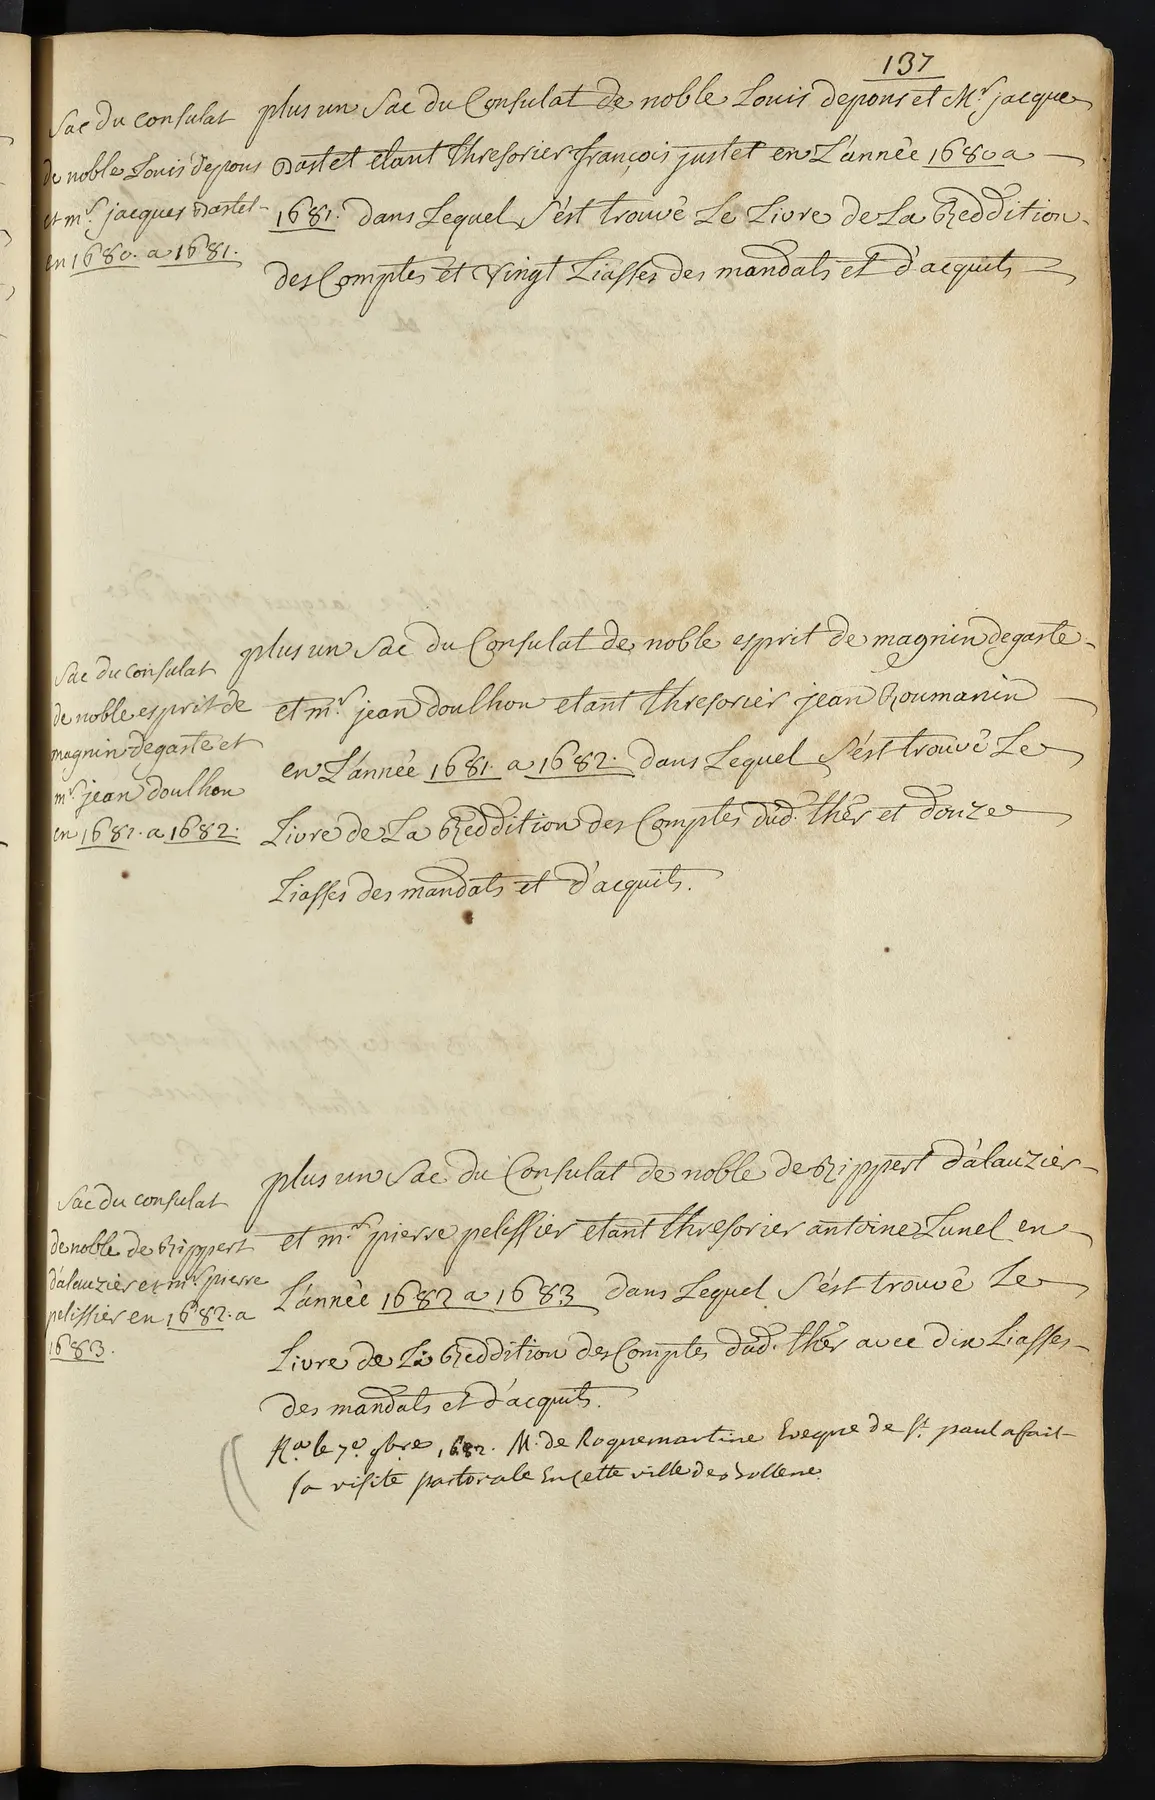 137
Sac du consulat
de noble Louis depons
et mr. jacques Dastet
en 1680. a 1681.
plus un Sac du Consulat de noble Louis depons et Mr jacque
Dastet etant thresorier françois justet en L'année 1680 a
1681. dans Lequel S'est trouvé Le Livre de La Reddition
des Comptes et Vingt Liasses des mandats et d'acquits
Sac du consulat
de noble esprit de
magnin degaste et
mr. jean doulhon
en 1681. a 1682.
plus un Sac du Consulat de noble esprit de magnin degaste
et mr. jean doulhon etant thresorier jean Roumanin
en L'année 1681. a 1682. dans Lequel S'est trouvé Le
Livre de La Reddition des Comptes dud. thër et douze
Liasses des mandats et d'acquits.
Sac du consulat
de noble de Rippert
d'alauzier et mr. pierre
pelissier en 1682. a
1683.
plus un Sac du Consulat de noble de Rippert d'alauzier
et mr. pierre pelissier etant thresorier antoine Lunel en
L'année 1682 a 1683 dans Lequel S'est trouvé Le
Livre de La Reddition des Comptes dud. thër avec dix Liasses
des mandats et d'acquits.
Na. le 7e. 9bre 1682. M. de Roquemartine Eveque de St. paul a fait
sa visite pastorale En cette ville de Bollene.